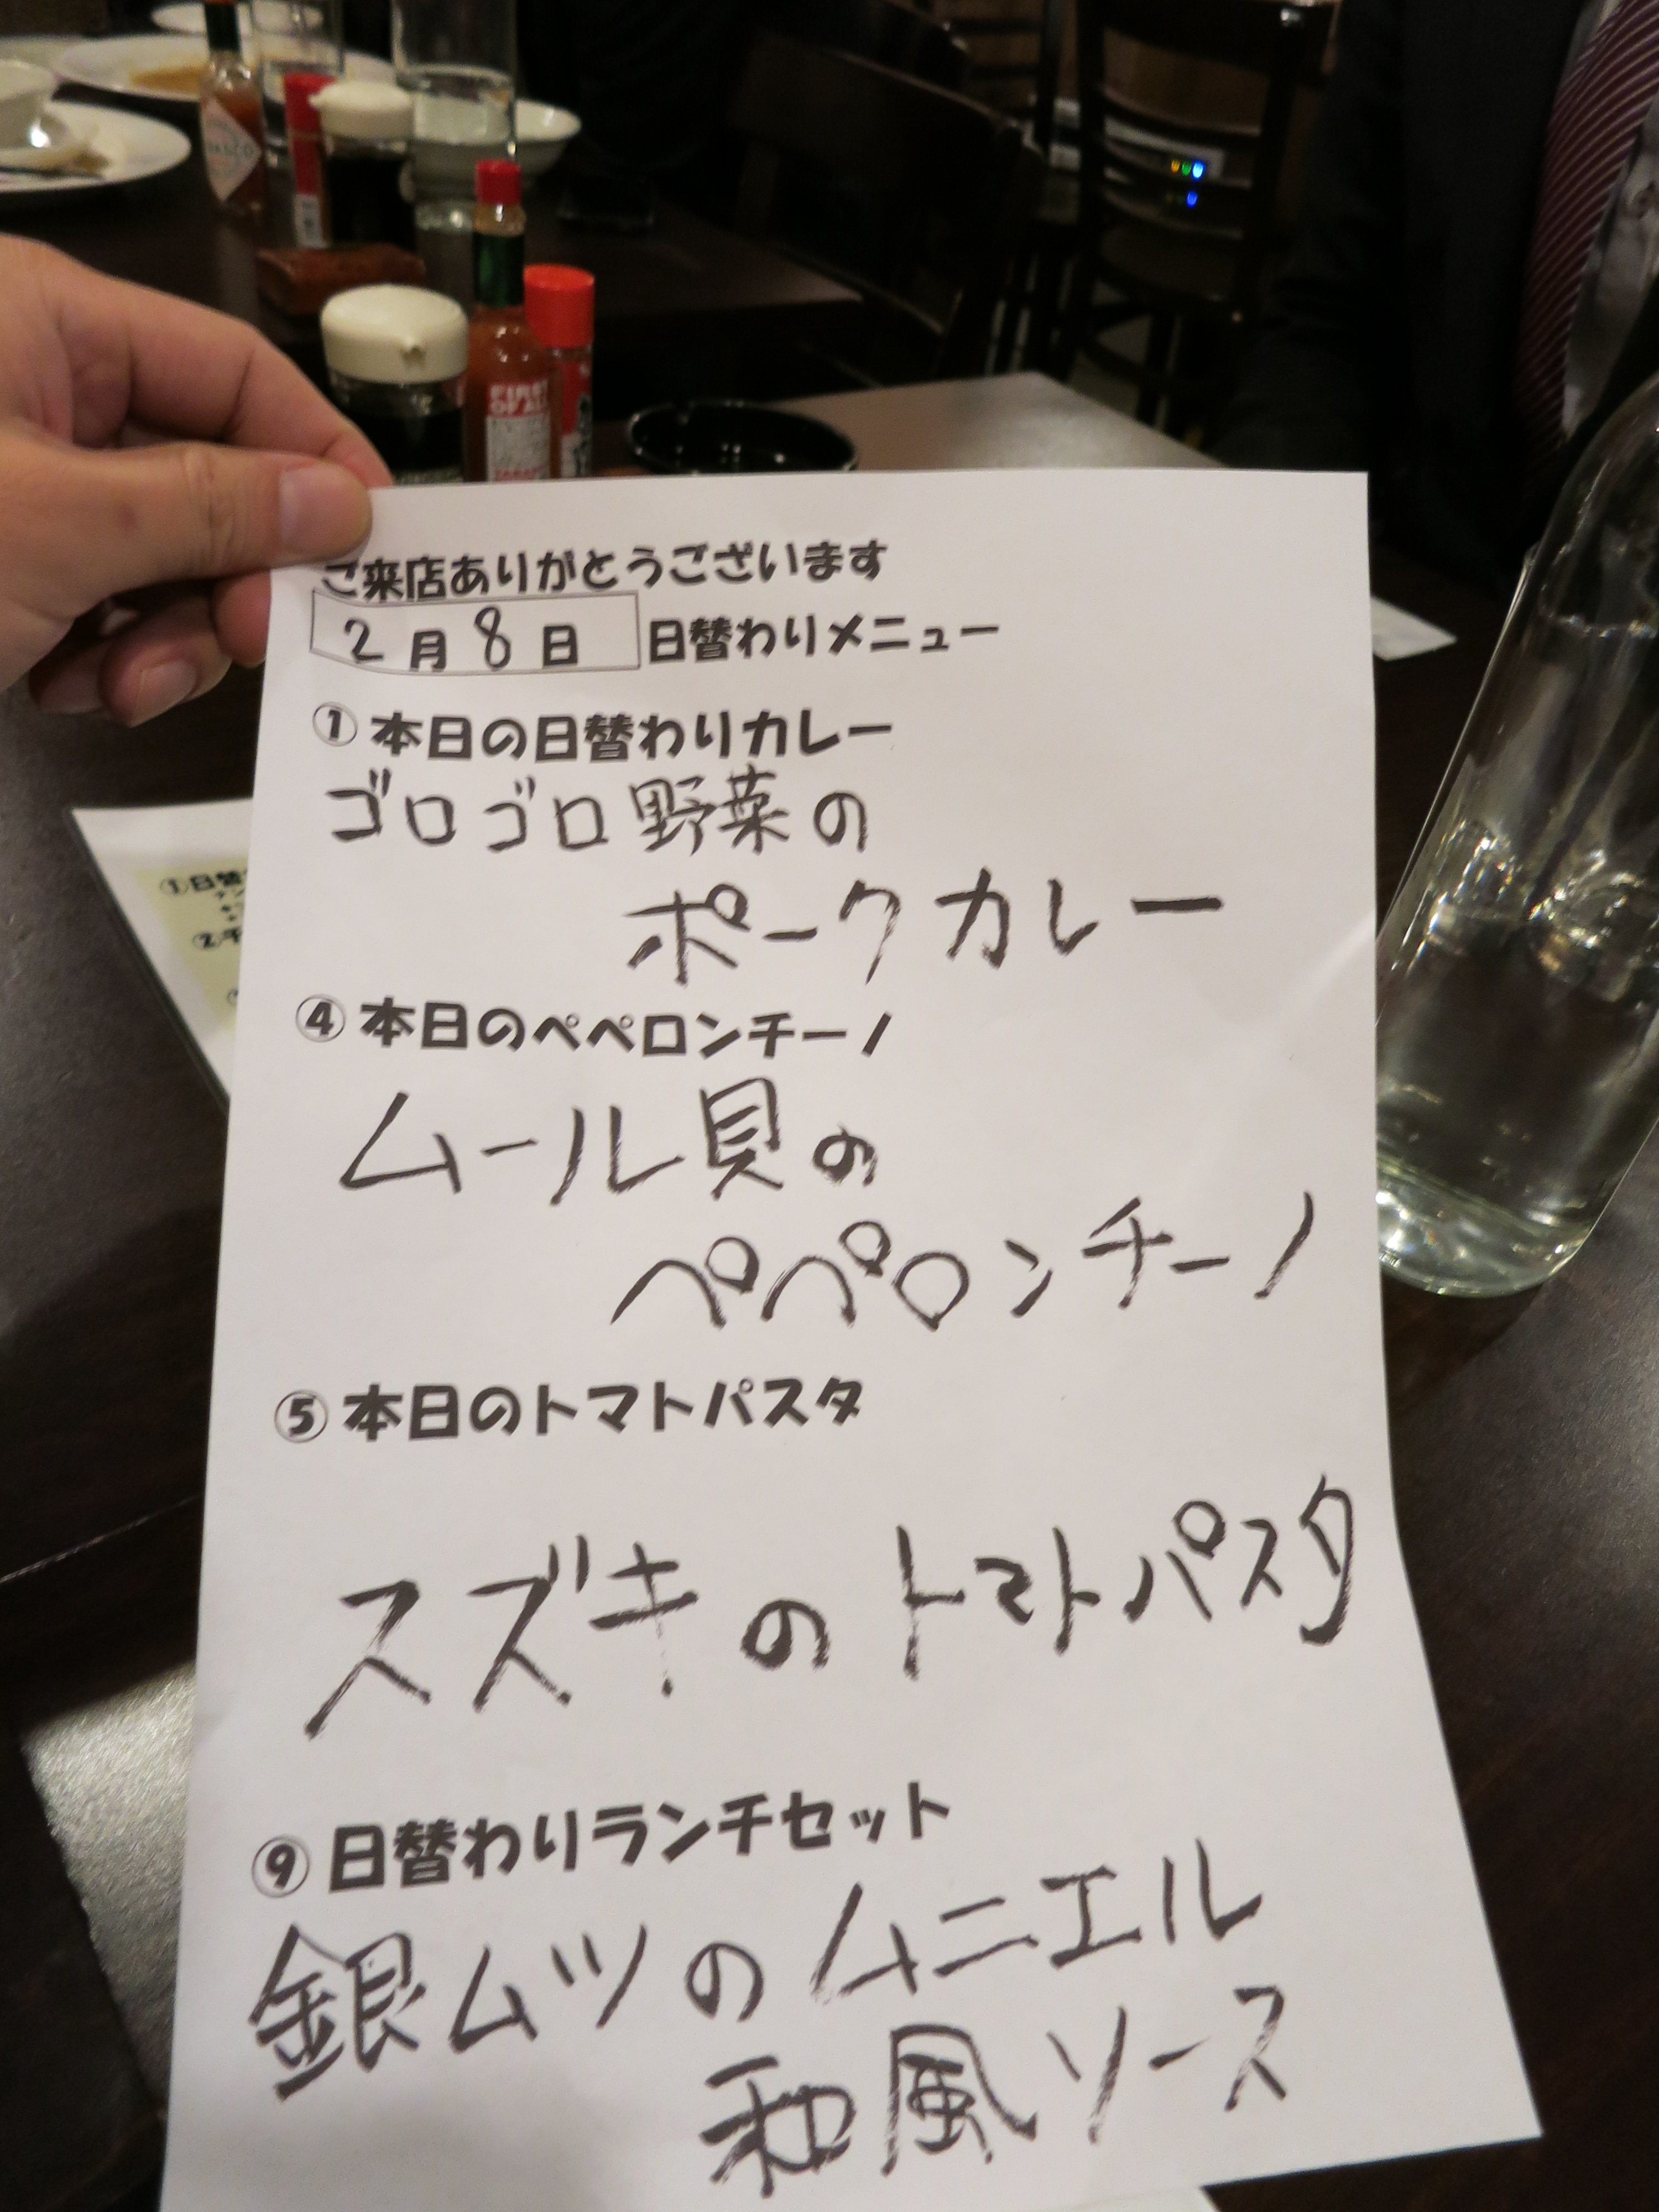 TABASCO
FIRST
OF ALL
ご来店ありがとうございます
2月8日 日替わりメニュー
① 本日の日替わりカレー
ゴロゴロ野菜の
ポークカレー
④ 本日のペペロンチーノ
ムール貝の
ペペロンチーノ
⑤ 本日のトマトパスタ
スズキのトマトパスタ
⑨ 日替わりランチセット
銀ムツのムニエル
和風ソース
①日替